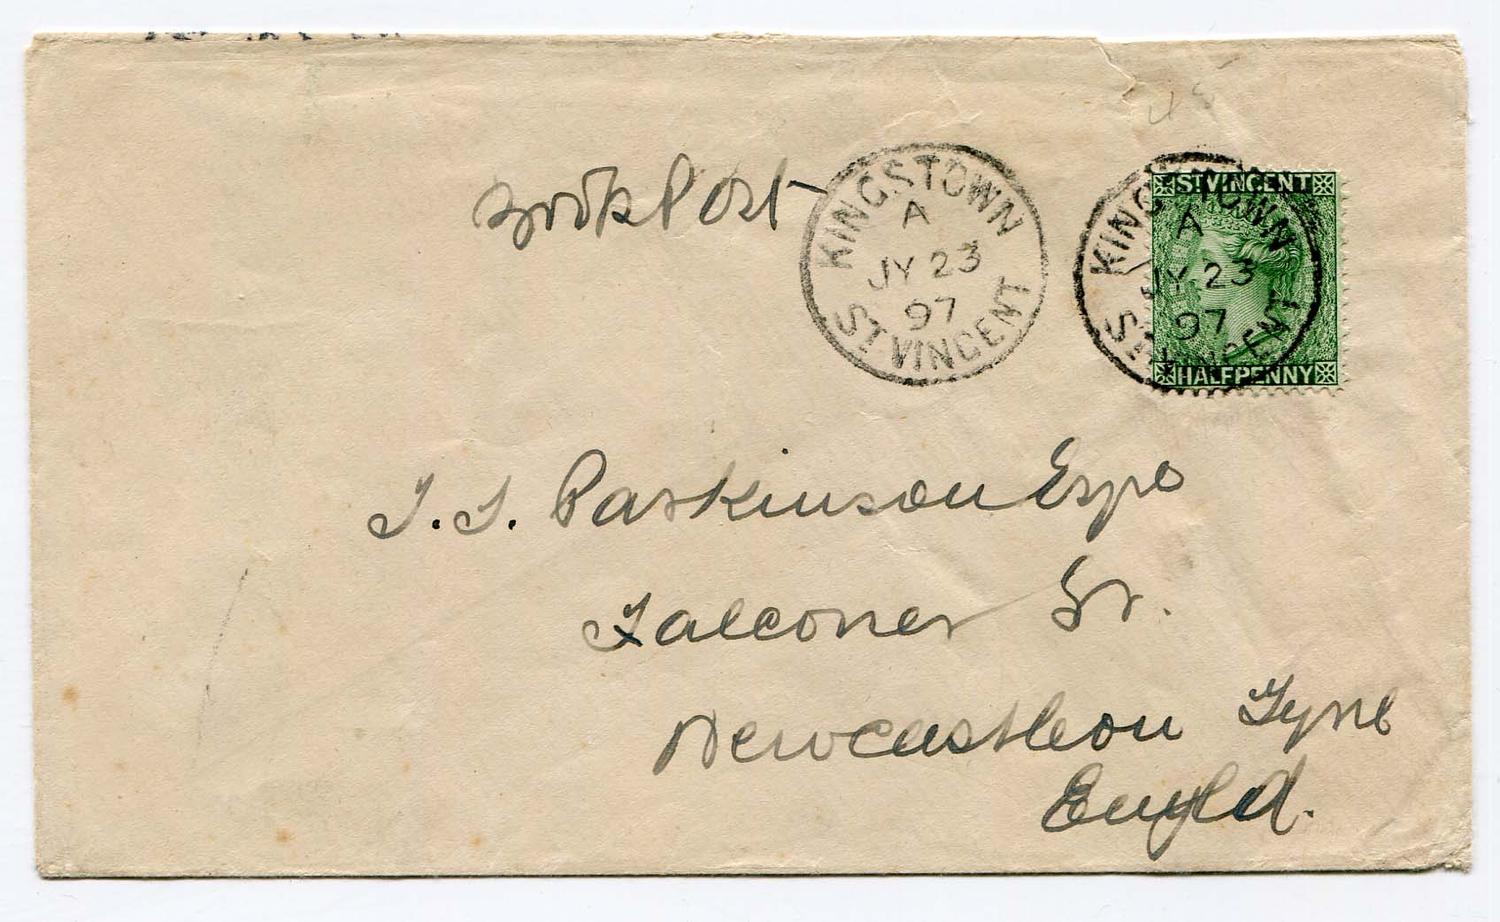 Book Post
KINGSTOWN
A
JY 23
97
ST. VINCENT
KINGSTOWN
A
JY 23
97
ST. VINCENT
ST VINCENT
HALFPENNY
Parkinson
Falconer St.
Newcastle on Tyne
Engld.